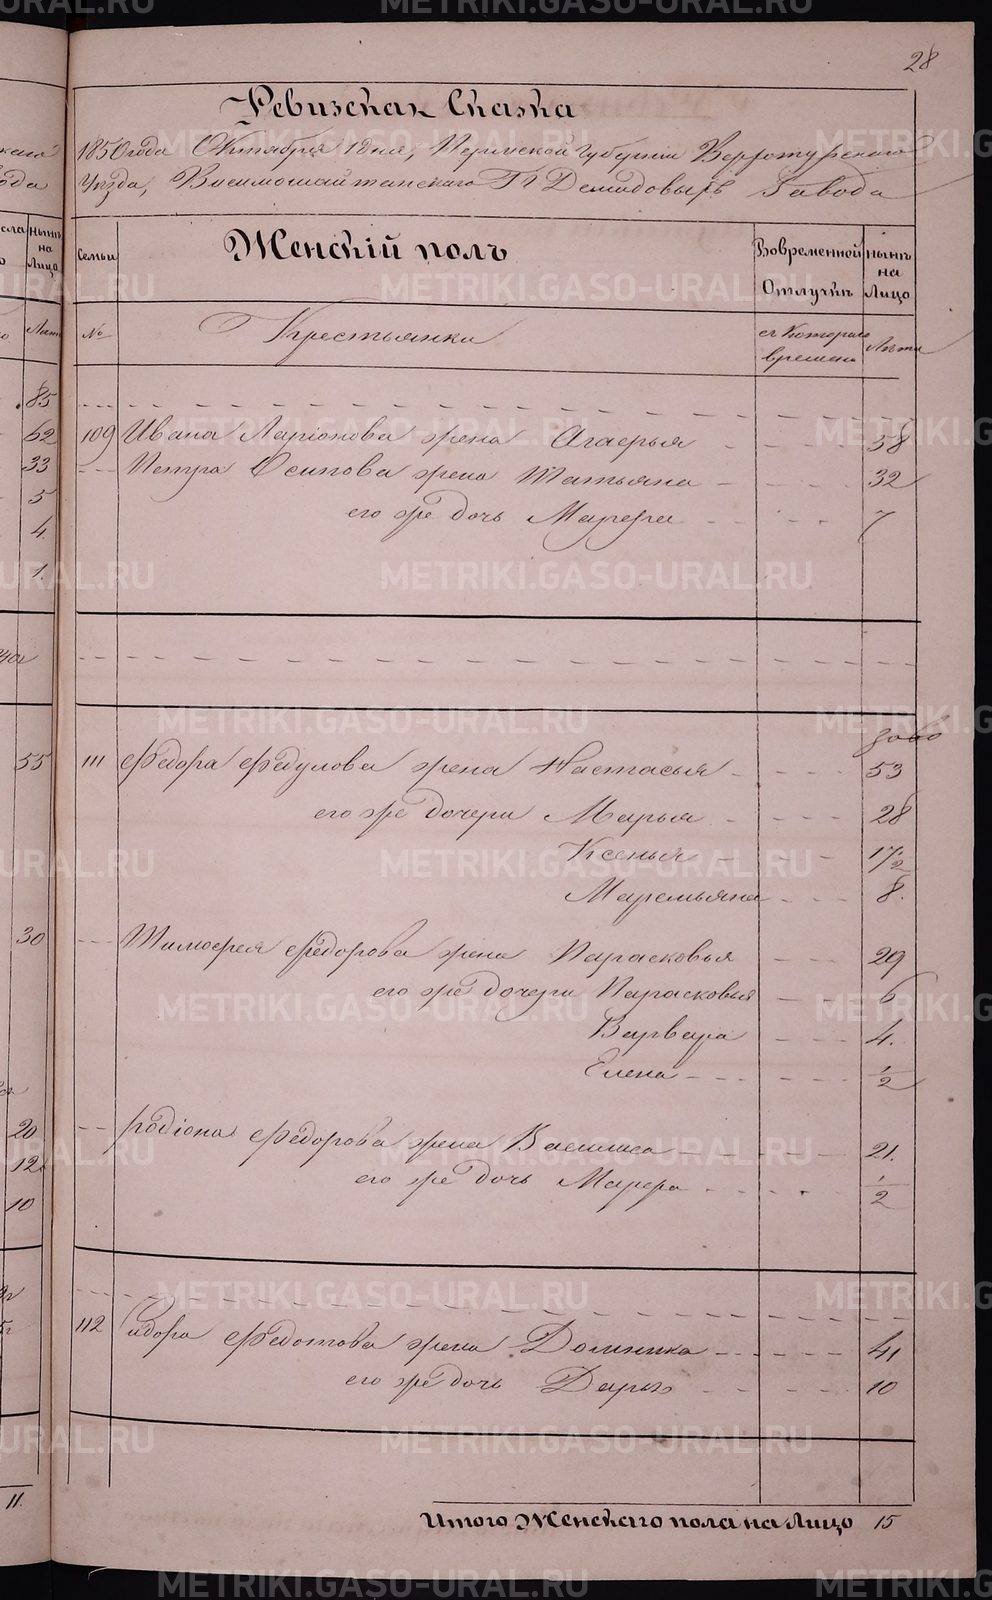 28
Ревизская Сказка
1850 года Октября 1 дня, Пермской Губерніи Верхотурскаго
Уѣзда, Висимошайтанскаго Г.г. Демидовыхъ Завода
Семьи
Женскій полъ
Вовременной Отлучкѣ
нынѣ на Лицо
№
Крестьянки
съ Котораго времени
Лѣта
109 Ивана Ларіонова жена Агафья 58
Петра Осипова жена Татьяна 32
его же дочь 7
111 Федора Федулова жена Настасья 53
его же дочери Марья 28
Ксенья 17 1/2
Маремьяна 8.
Тимофея Федорова жена Парасковья 29
его же дочери Парасковья 6
Варвара 4.
Елена 1/2
Родіона Федорова жена Василиса 21.
его же дочь Марфа 1/2
112 Сидора Федотова жена Домника 41
его же дочь Дарья 10
Итого Женскаго пола на Лицо 15
85
62
33
5
4.
1.
55
30
20
12
10
11.
METRIKI.GASO-URAL.RU